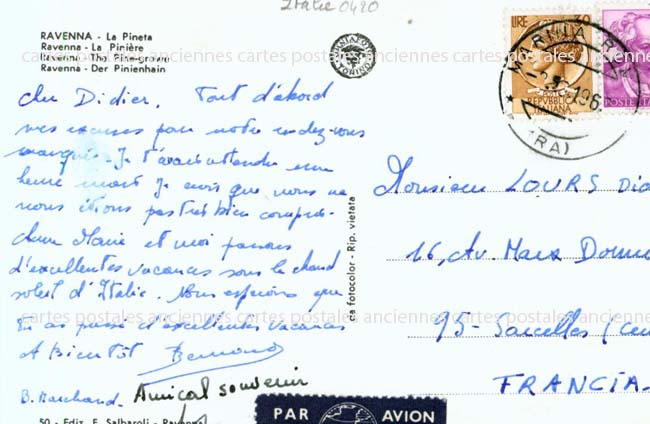 Italie 0420
RAVENNA - La Pineta
Ravenna - La Pinière
Ravenna - The Pine-grown
Ravenna - Der Pinienhain
LIRE 30
MARINA
196
(RA)
REPVBBLICA
ITALIANA
POSTE ITA
cartes postales anciennes cartes postales anciennes cartes postales anciennes
Cher Didier. Tout d'abord
mes excuses pour notre rendez-vous
manqué. Je t'avais attendu une
heure mais je crois que nous ne
nous étions pas très bien compris.
Anne Marie et moi passons
d'excellentes vacances sous le chaud
soleil d'Italie. Nous espérons que
tu as passé d'excellentes vacances
A Bientôt Bernard
B. Marchand. Amical souvenir
da fotocolor - Rip. vietata
Monsieur LOURS Did
16, Av. Marx Dormo
cartes postales anciennes cartes postales anciennes cartes postales anciennes
95 - Sarcelles (
FRANCIA
50 - Ediz. E. Salbaroli - Ravenna
PAR AVION